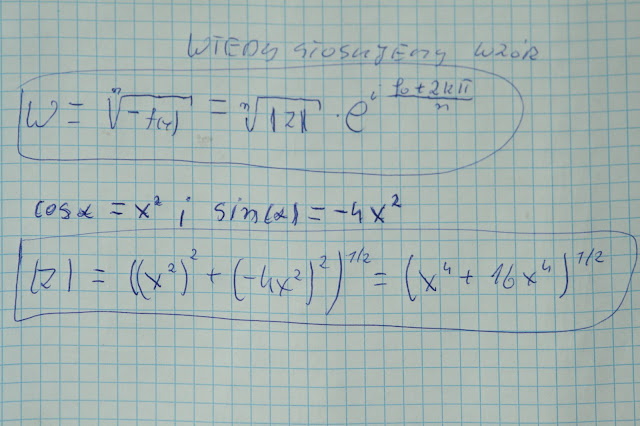 WTEDY STOSUJEMY WZÓR
W = ⁿ√-f(x) = ⁿ√|z| · e^(i (φ₀ + 2kπ)/n)
cos α = x² i sin(α) = -4x²
|z| = ((x²)² + (-4x²)²)^1/2 = (x⁴ + 16x⁴)^1/2